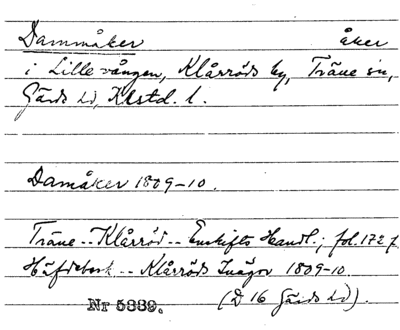 Dammåker åker
i Lille vången, Klårröds by, Träne sn,
Gärds hd, Kstd. l.
Damåker 1809-10.
Träne .. Klårröd .. Enskifts Handl.; fol. 172 f
Häfdebesk .. Klårröds Inägor 1809-10.
Nr 5339. (D 16 Gärds hd).